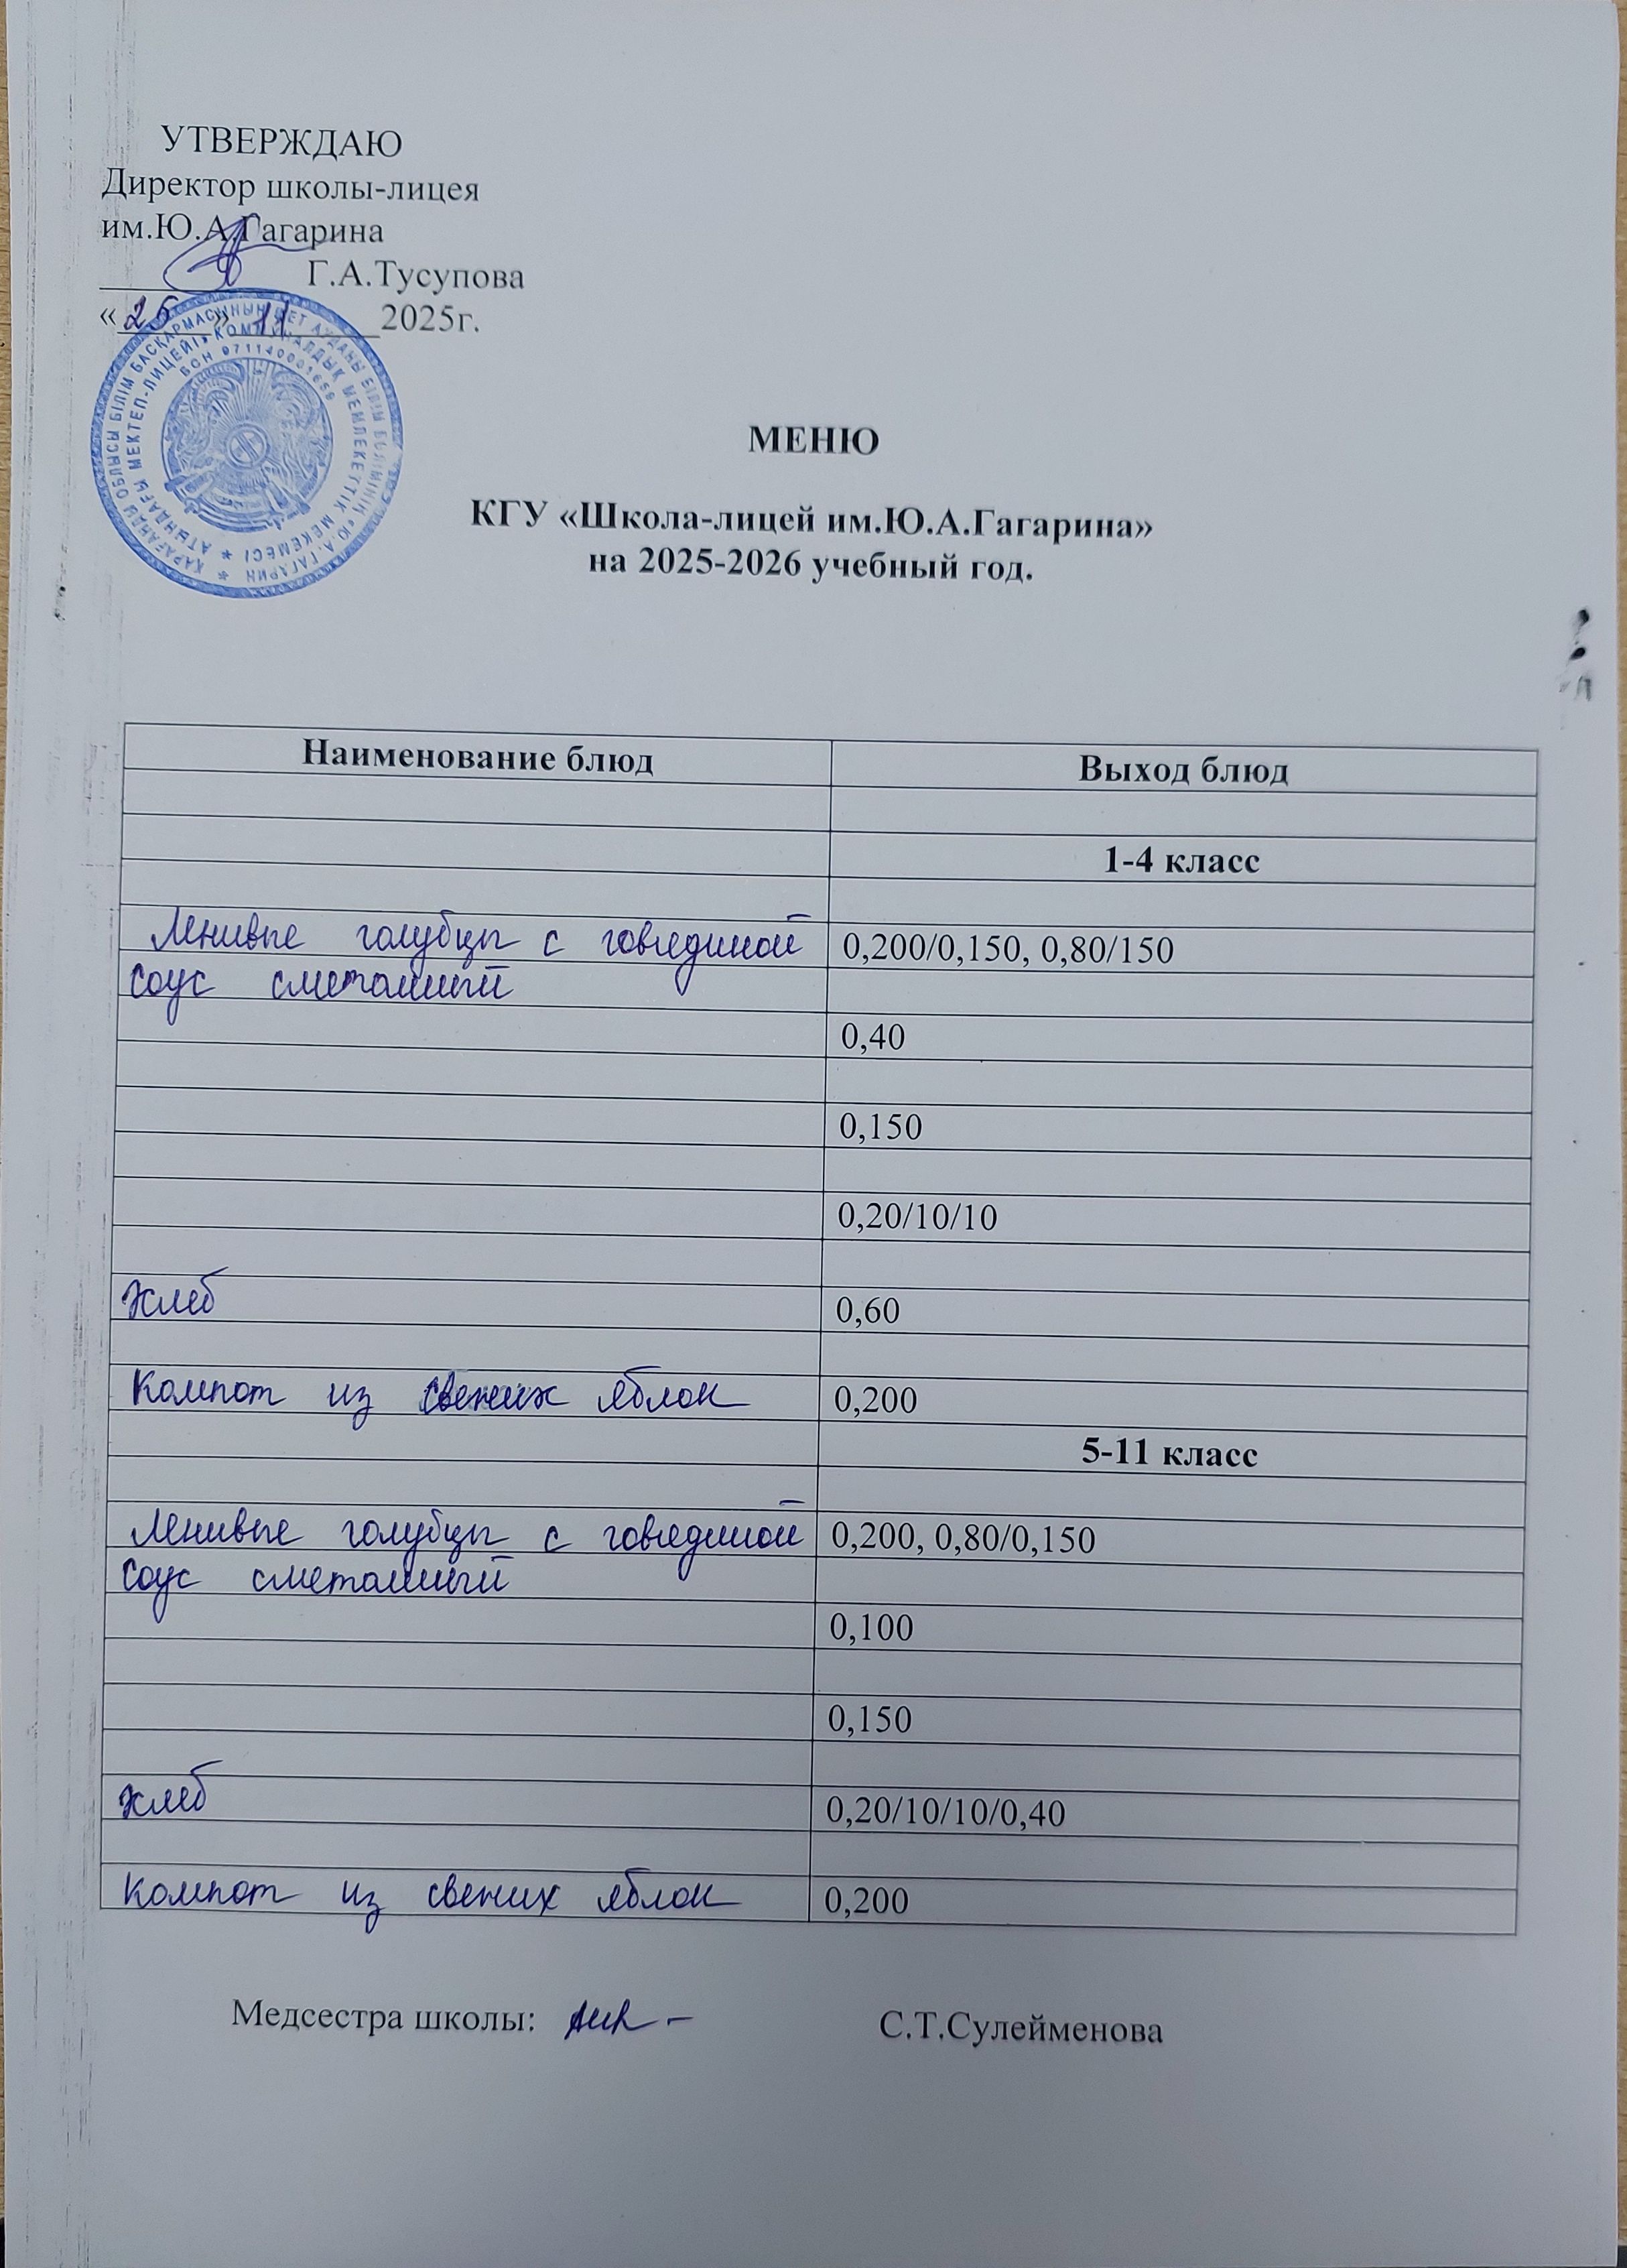 УТВЕРЖДАЮ
Директор школы-лицея
им.Ю.А.Гагарина
Г.А.Тусупова
«26» 11 2025г.
ҚАРАҒАНДЫ ОБЛЫСЫ БІЛІМ БАСҚАРМАСЫНЫҢ ШЕТ АУДАНЫ БІЛІМ БӨЛІМІНІҢ «Ю.А.ГАГАРИН
АТЫНДАҒЫ МЕКТЕП-ЛИЦЕЙІ» КОММУНАЛДЫҚ МЕМЛЕКЕТТІК МЕКЕМЕСІ
БСН 971140001659
МЕНЮ
КГУ «Школа-лицей им.Ю.А.Гагарина»
на 2025-2026 учебный год.
Наименование блюд Выход блюд
1-4 класс
Ленивые голубцы с говядиной 0,200/0,150, 0,80/150
соус сметанный
0,40
0,150
0,20/10/10
Хлеб 0,60
Компот из свежих яблок 0,200
5-11 класс
Ленивые голубцы с говядиной 0,200, 0,80/0,150
соус сметанный
0,100
0,150
хлеб 0,20/10/10/0,40
Компот из свежих яблок 0,200
Медсестра школы: С.Т.Сулейменова